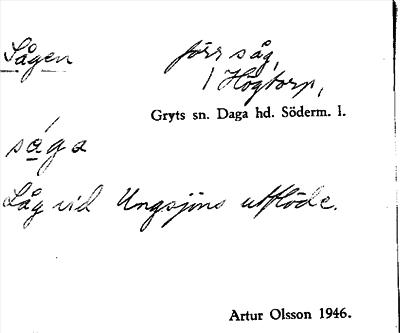 Sågen förr såg,
i Högtorp,
Gryts sn. Daga hd. Söderm. l.
såga
Låg vid Ungsjöns utflöde.
Artur Olsson 1946.